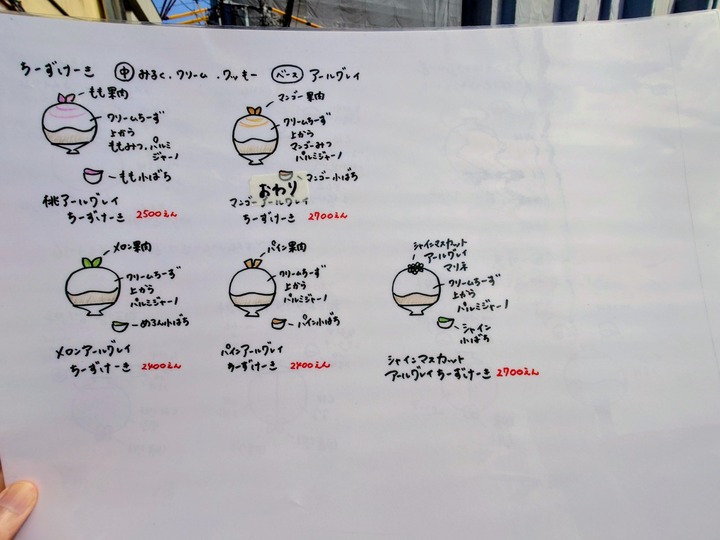 ちーずけーき 中 みるく、クリーム、クッキー ベース アールグレイ
もも果肉
クリームちーず
上から
ももみつ、パルミ
ジャーノ
もも小ばち
桃アールグレイ
ちーずけーき 2500えん
マンゴー果肉
クリームちーず
上から
マンゴーみつ
パルミジャーノ
マンゴー小ばち
おわり
マンゴーアールグレイ
ちーずけーき 2700えん
メロン果肉
クリームちーず
上から
パルミジャーノ
めろん小ばち
メロンアールグレイ
ちーずけーき 2400えん
パイン果肉
クリームちーず
上から
パルミジャーノ
パイン小ばち
パインアールグレイ
ちーずけーき 2400えん
シャインマスカット
アールグレイ
マリネ
クリームちーず
上から
パルミジャーノ
シャイン
小ばち
シャインマスカット
アールグレイちーずけーき 2700えん